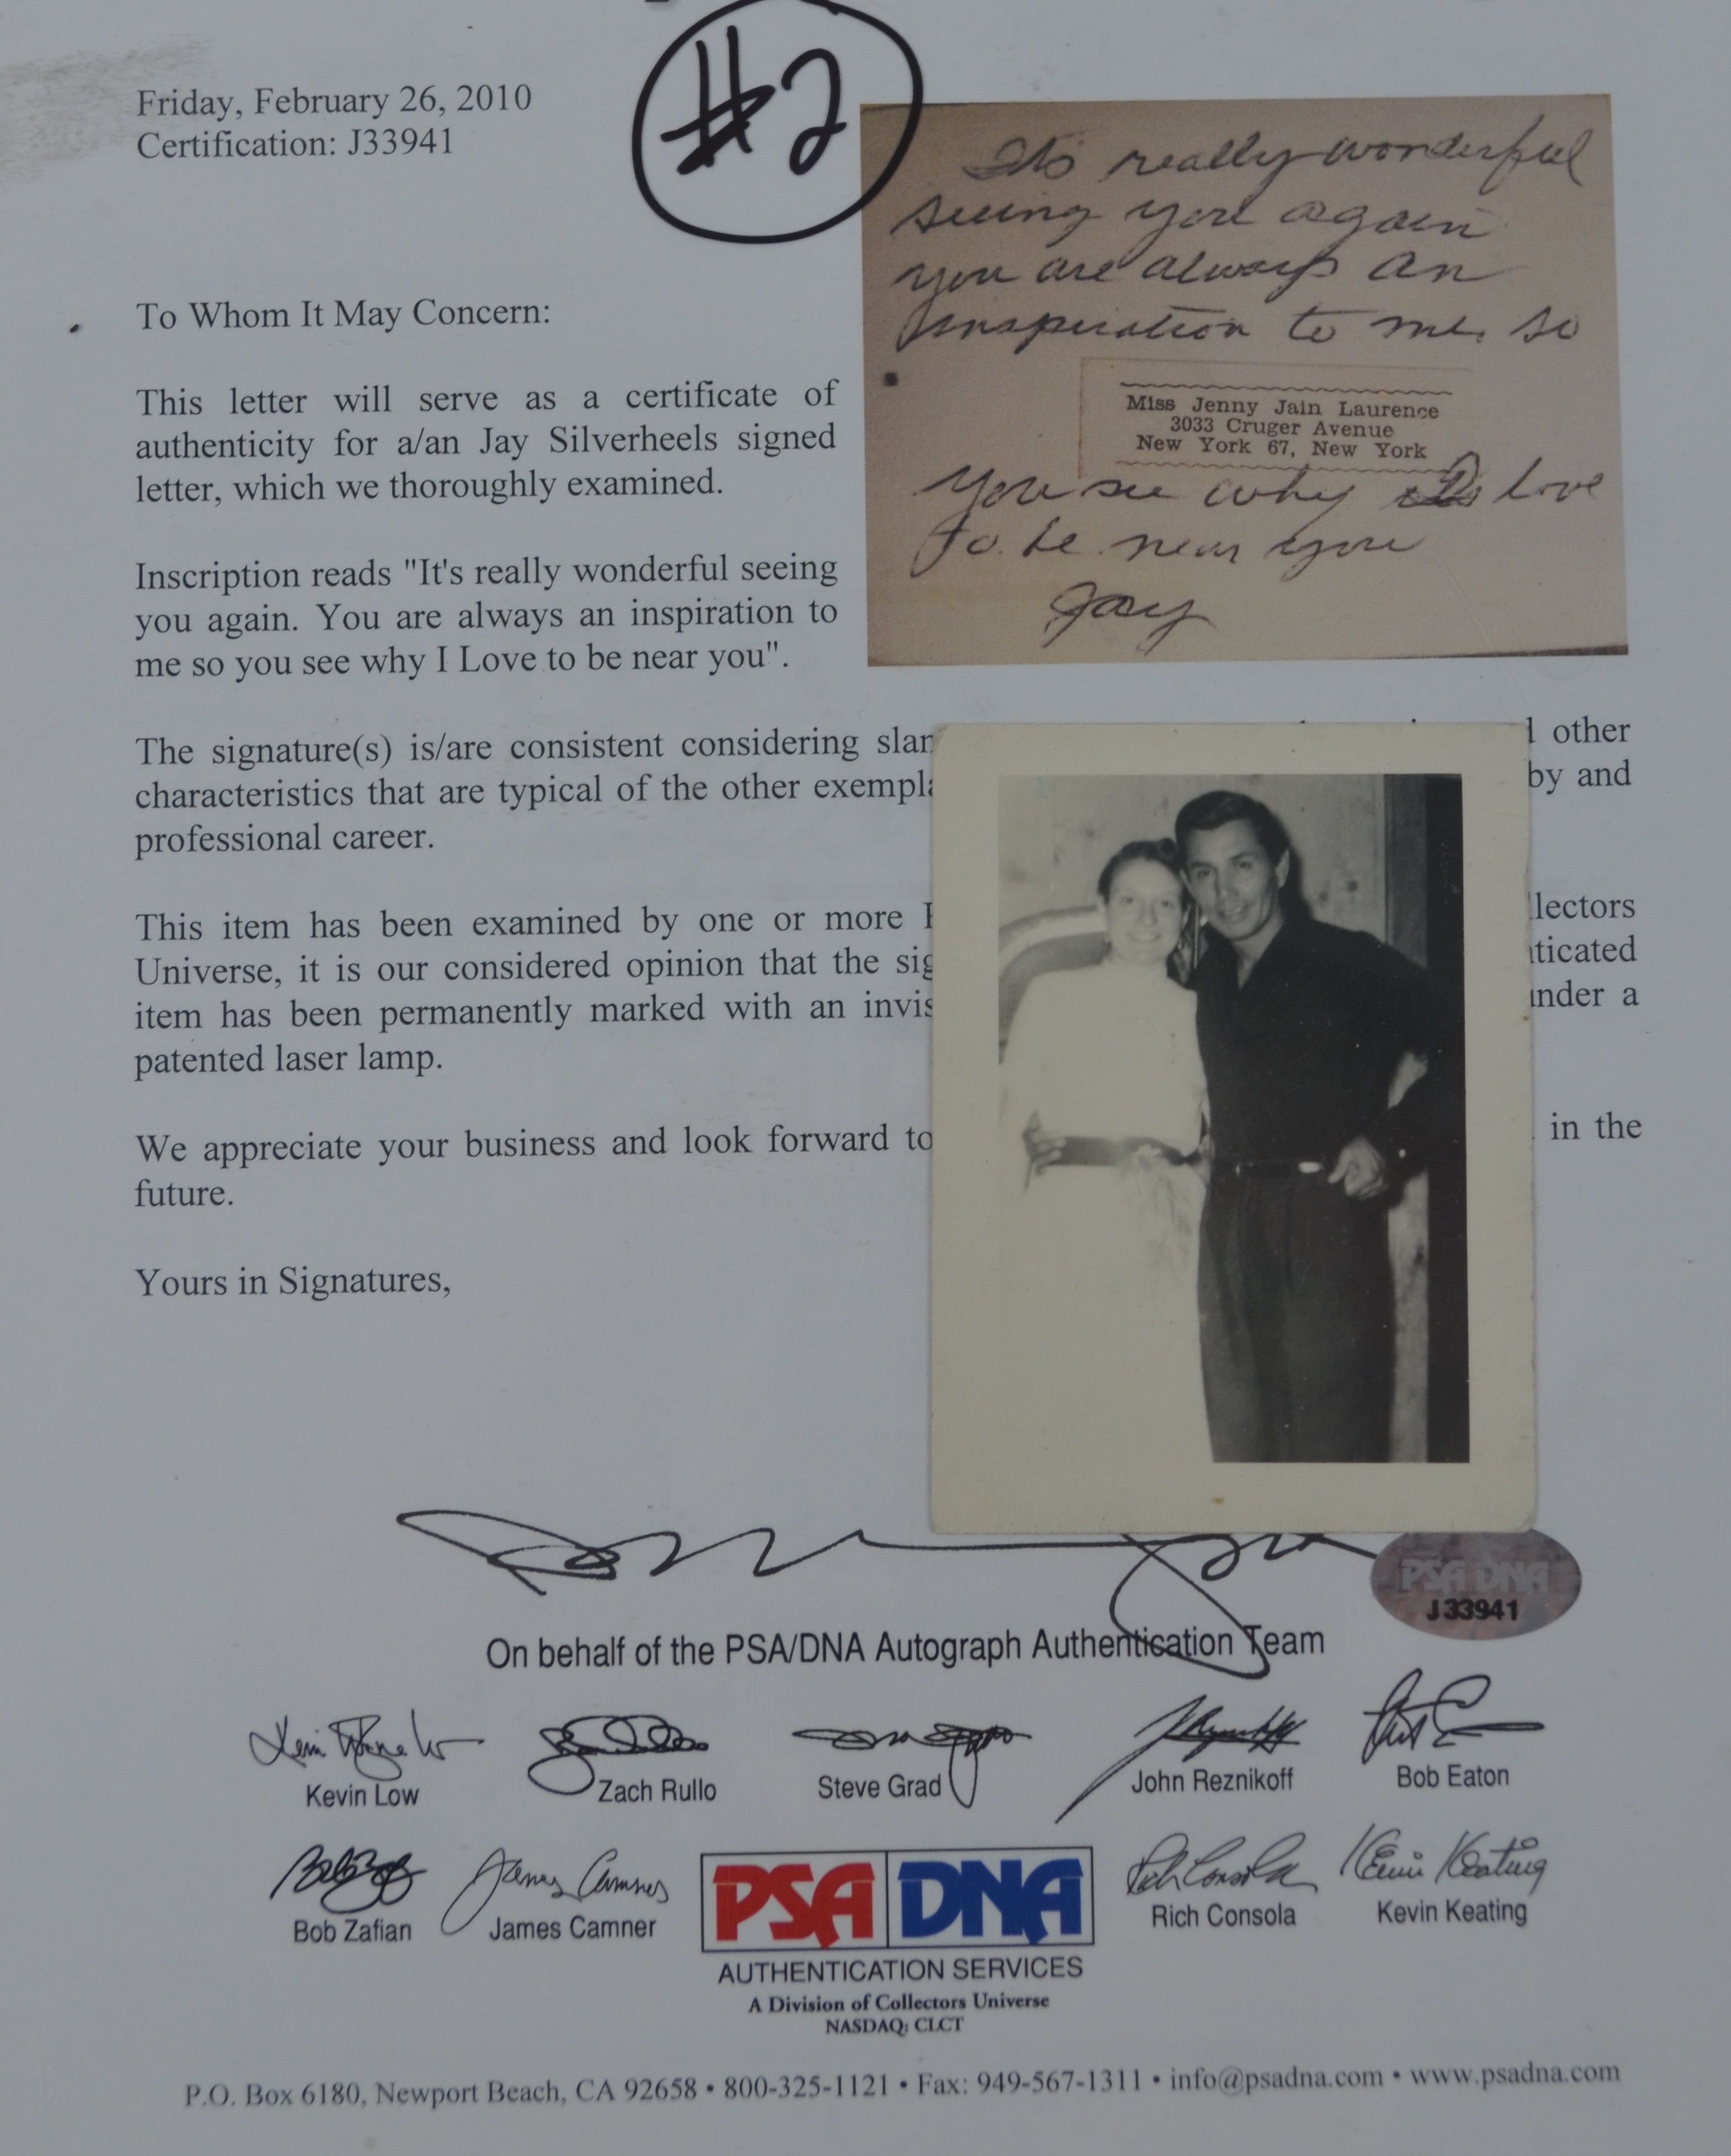 #2
Friday, February 26, 2010
Certification: J33941
It's really wonderful
seeing you again
you are always an
inspiration to me. so
Miss Jenny Jain Laurence
3033 Cruger Avenue
New York 67, New York
you see why I love
to be near you
Jay
To Whom It May Concern:
This letter will serve as a certificate of
authenticity for a/an Jay Silverheels signed
letter, which we thoroughly examined.
Inscription reads "It's really wonderful seeing
you again. You are always an inspiration to
me so you see why I Love to be near you".
The signature(s) is/are consistent considering other
characteristics that are typical of the other by and
professional career.
This item has been examined by one or more
Universe, it is our considered opinion that the
item has been permanently marked with an under a
patented laser lamp.
We appreciate your business and look forward to in the
future.
Yours in Signatures,
PSA DNA
J33941
On behalf of the PSA/DNA Autograph Authentication Team
Kevin Low Zach Rullo Steve Grad John Reznikoff Bob Eaton
Bob Zafian James Camner Rich Consola Kevin Keating
PSA DNA
AUTHENTICATION SERVICES
A Division of Collectors Universe
NASDAQ: CLCT
P.O. Box 6180, Newport Beach, CA 92658 • 800-325-1121 • Fax: 949-567-1311 • info@psadna.com • www.psadna.com